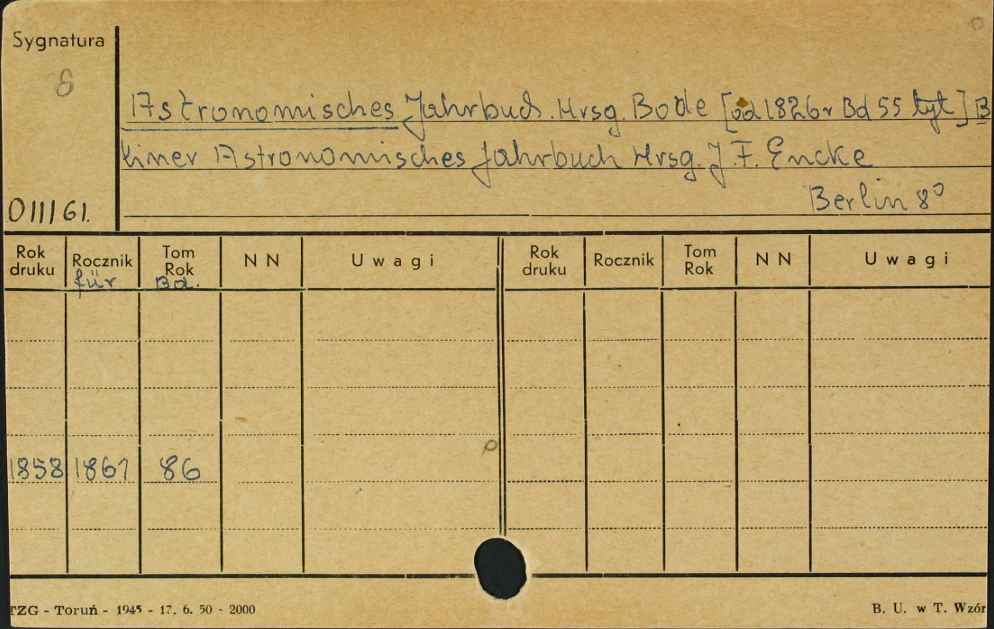 Sygnatura
8
Astronomisches Jahrbuch. Hrsg. Bode [od 1826r Bd 55 tyt] B
liner Astronomisches Jahrbuch Hrsg. J. F. Encke
Berlin 8°
O III 61.
Rok druku Rocznik Tom Rok N N Uwagi Rok druku Rocznik Tom Rok N N Uwagi
für Bd.
1858 1861 86
TZG - Toruń - 1945 - 17. 6. 50 - 2000 B. U. w T. Wzór